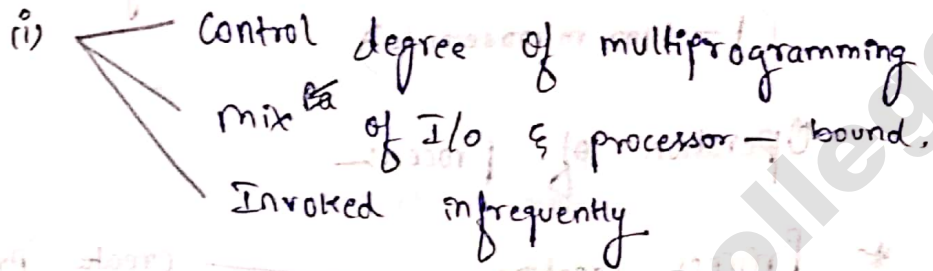 (i) Control degree of multiprogramming
mix of I/O & processor - bound.
Invoked infrequently
ollege